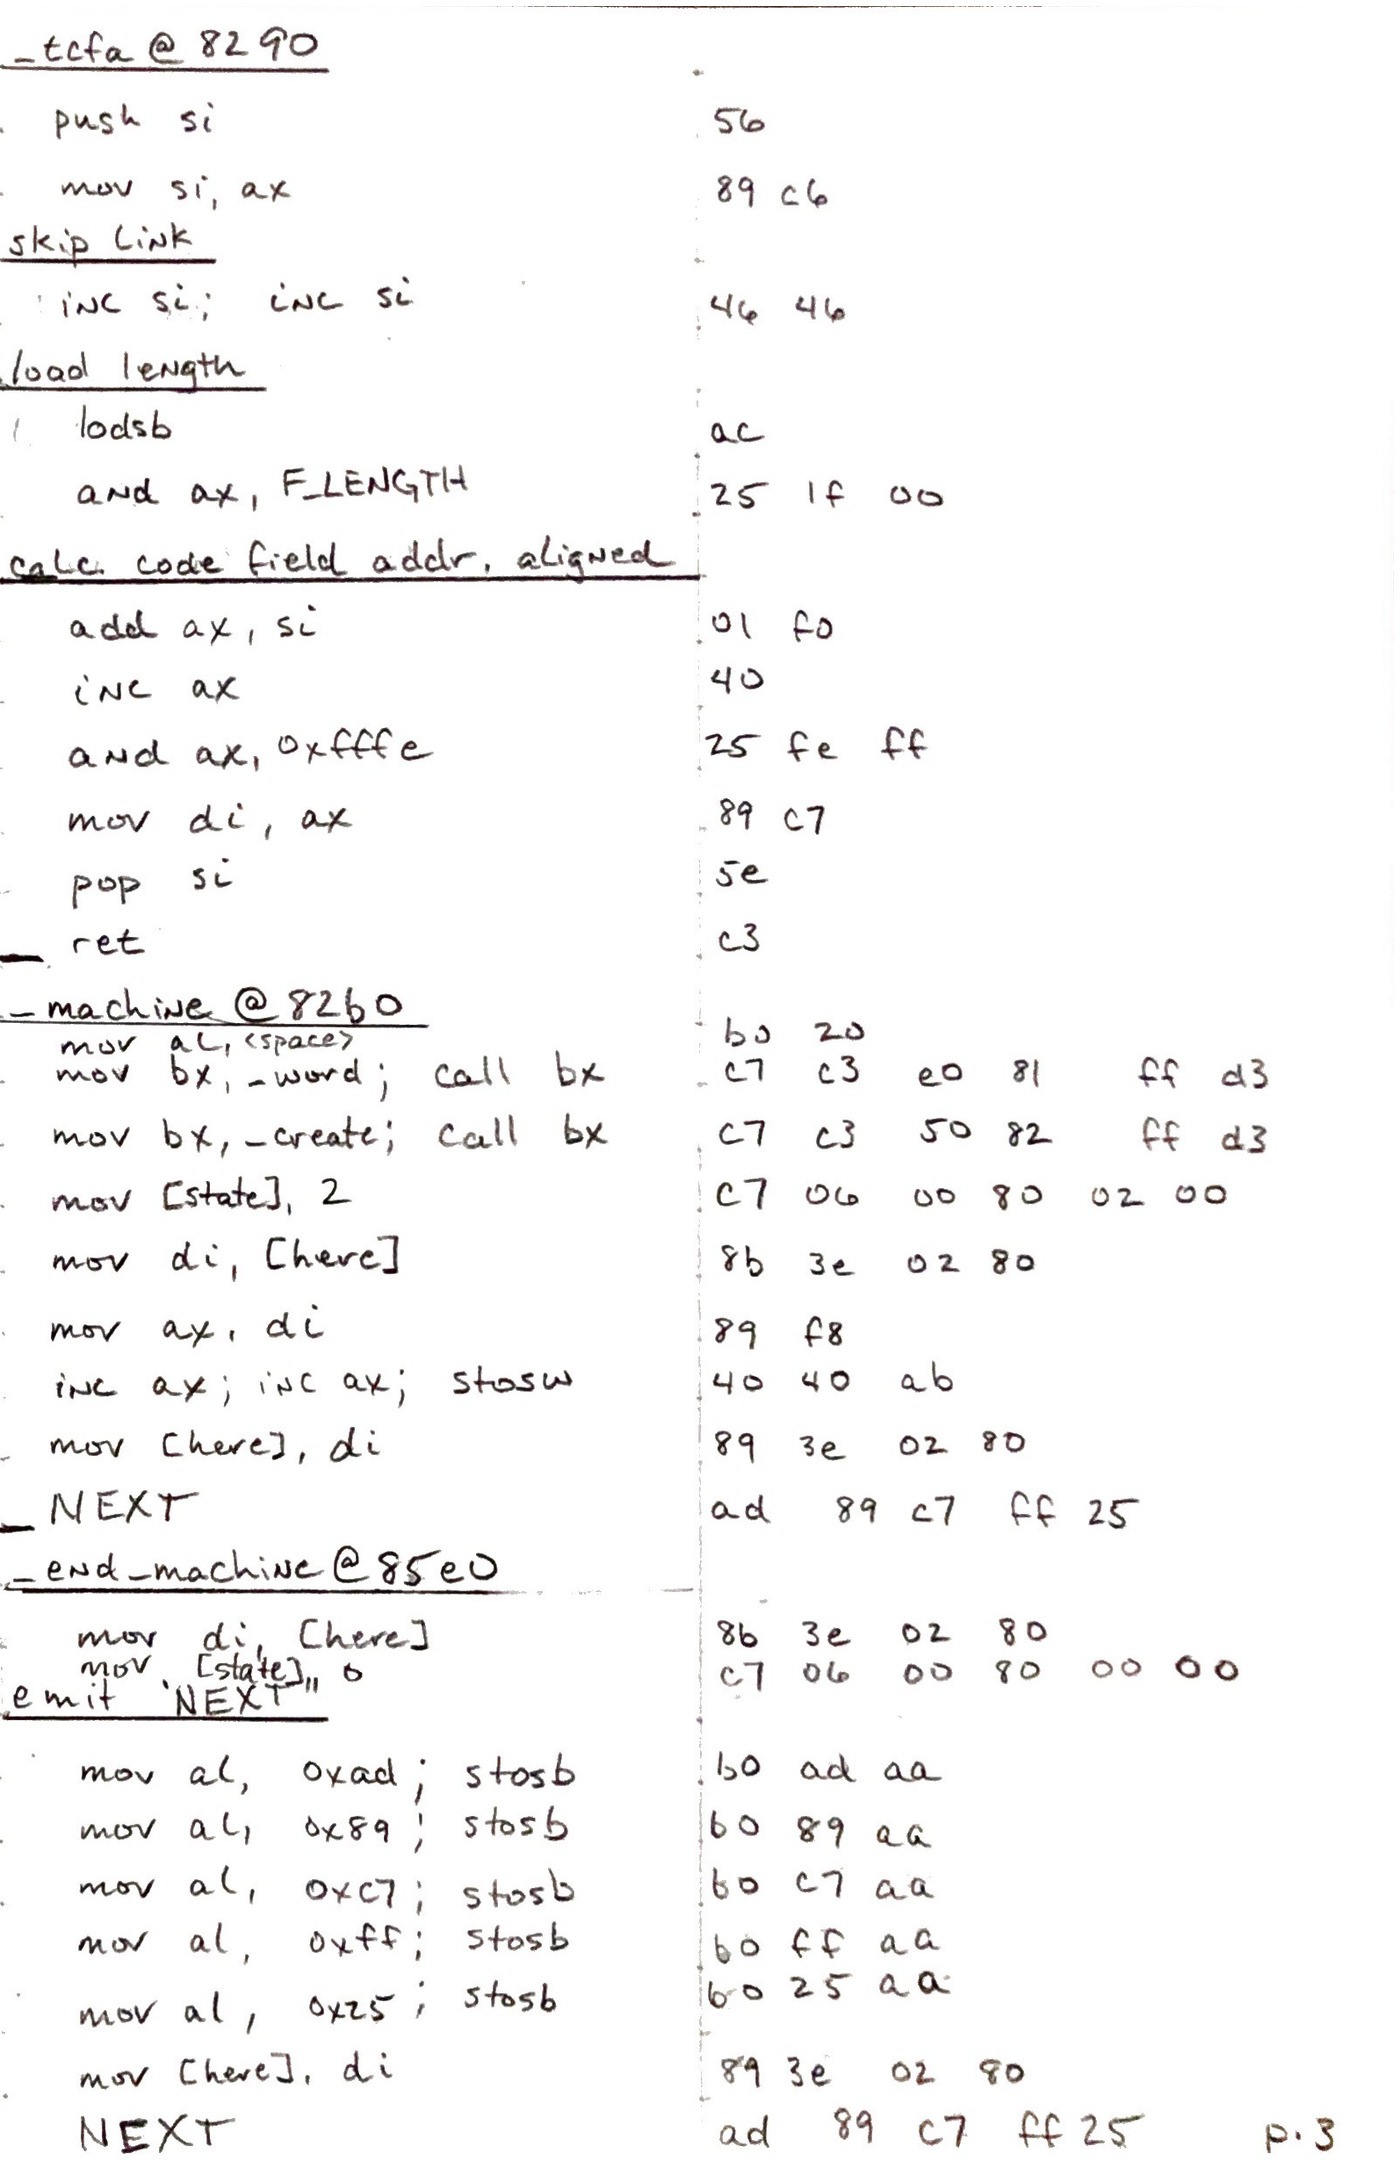 _tcfa @ 8290
push si 56
mov si, ax 89 c6
skip link
inc si; inc si 46 46
load length
lodsb ac
and ax, F_LENGTH 25 1f 00
calc. code field addr, aligned
add ax, si 01 f0
inc ax 40
and ax, 0xfffe 25 fe ff
mov di, ax 89 c7
pop si 5e
ret c3
_machine @ 82b0
mov al, <space> b0 20
mov bx, _word; call bx c7 c3 e0 81 ff d3
mov bx, _create; call bx c7 c3 50 82 ff d3
mov [state], 2 c7 06 00 80 02 00
mov di, [here] 8b 3e 02 80
mov ax, di 89 f8
inc ax; inc ax; stosw 40 40 ab
mov [here], di 89 3e 02 80
NEXT ad 89 c7 ff 25
_end_machine @ 85e0
mov di, [here] 8b 3e 02 80
mov [state], 0 c7 06 00 80 00 00
emit "NEXT"
mov al, 0xad; stosb b0 ad aa
mov al, 0x89; stosb b0 89 aa
mov al, 0xc7; stosb b0 c7 aa
mov al, 0xff; stosb b0 ff aa
mov al, 0x25; stosb b0 25 aa
mov [here], di 89 3e 02 80
NEXT ad 89 c7 ff 25 p.3